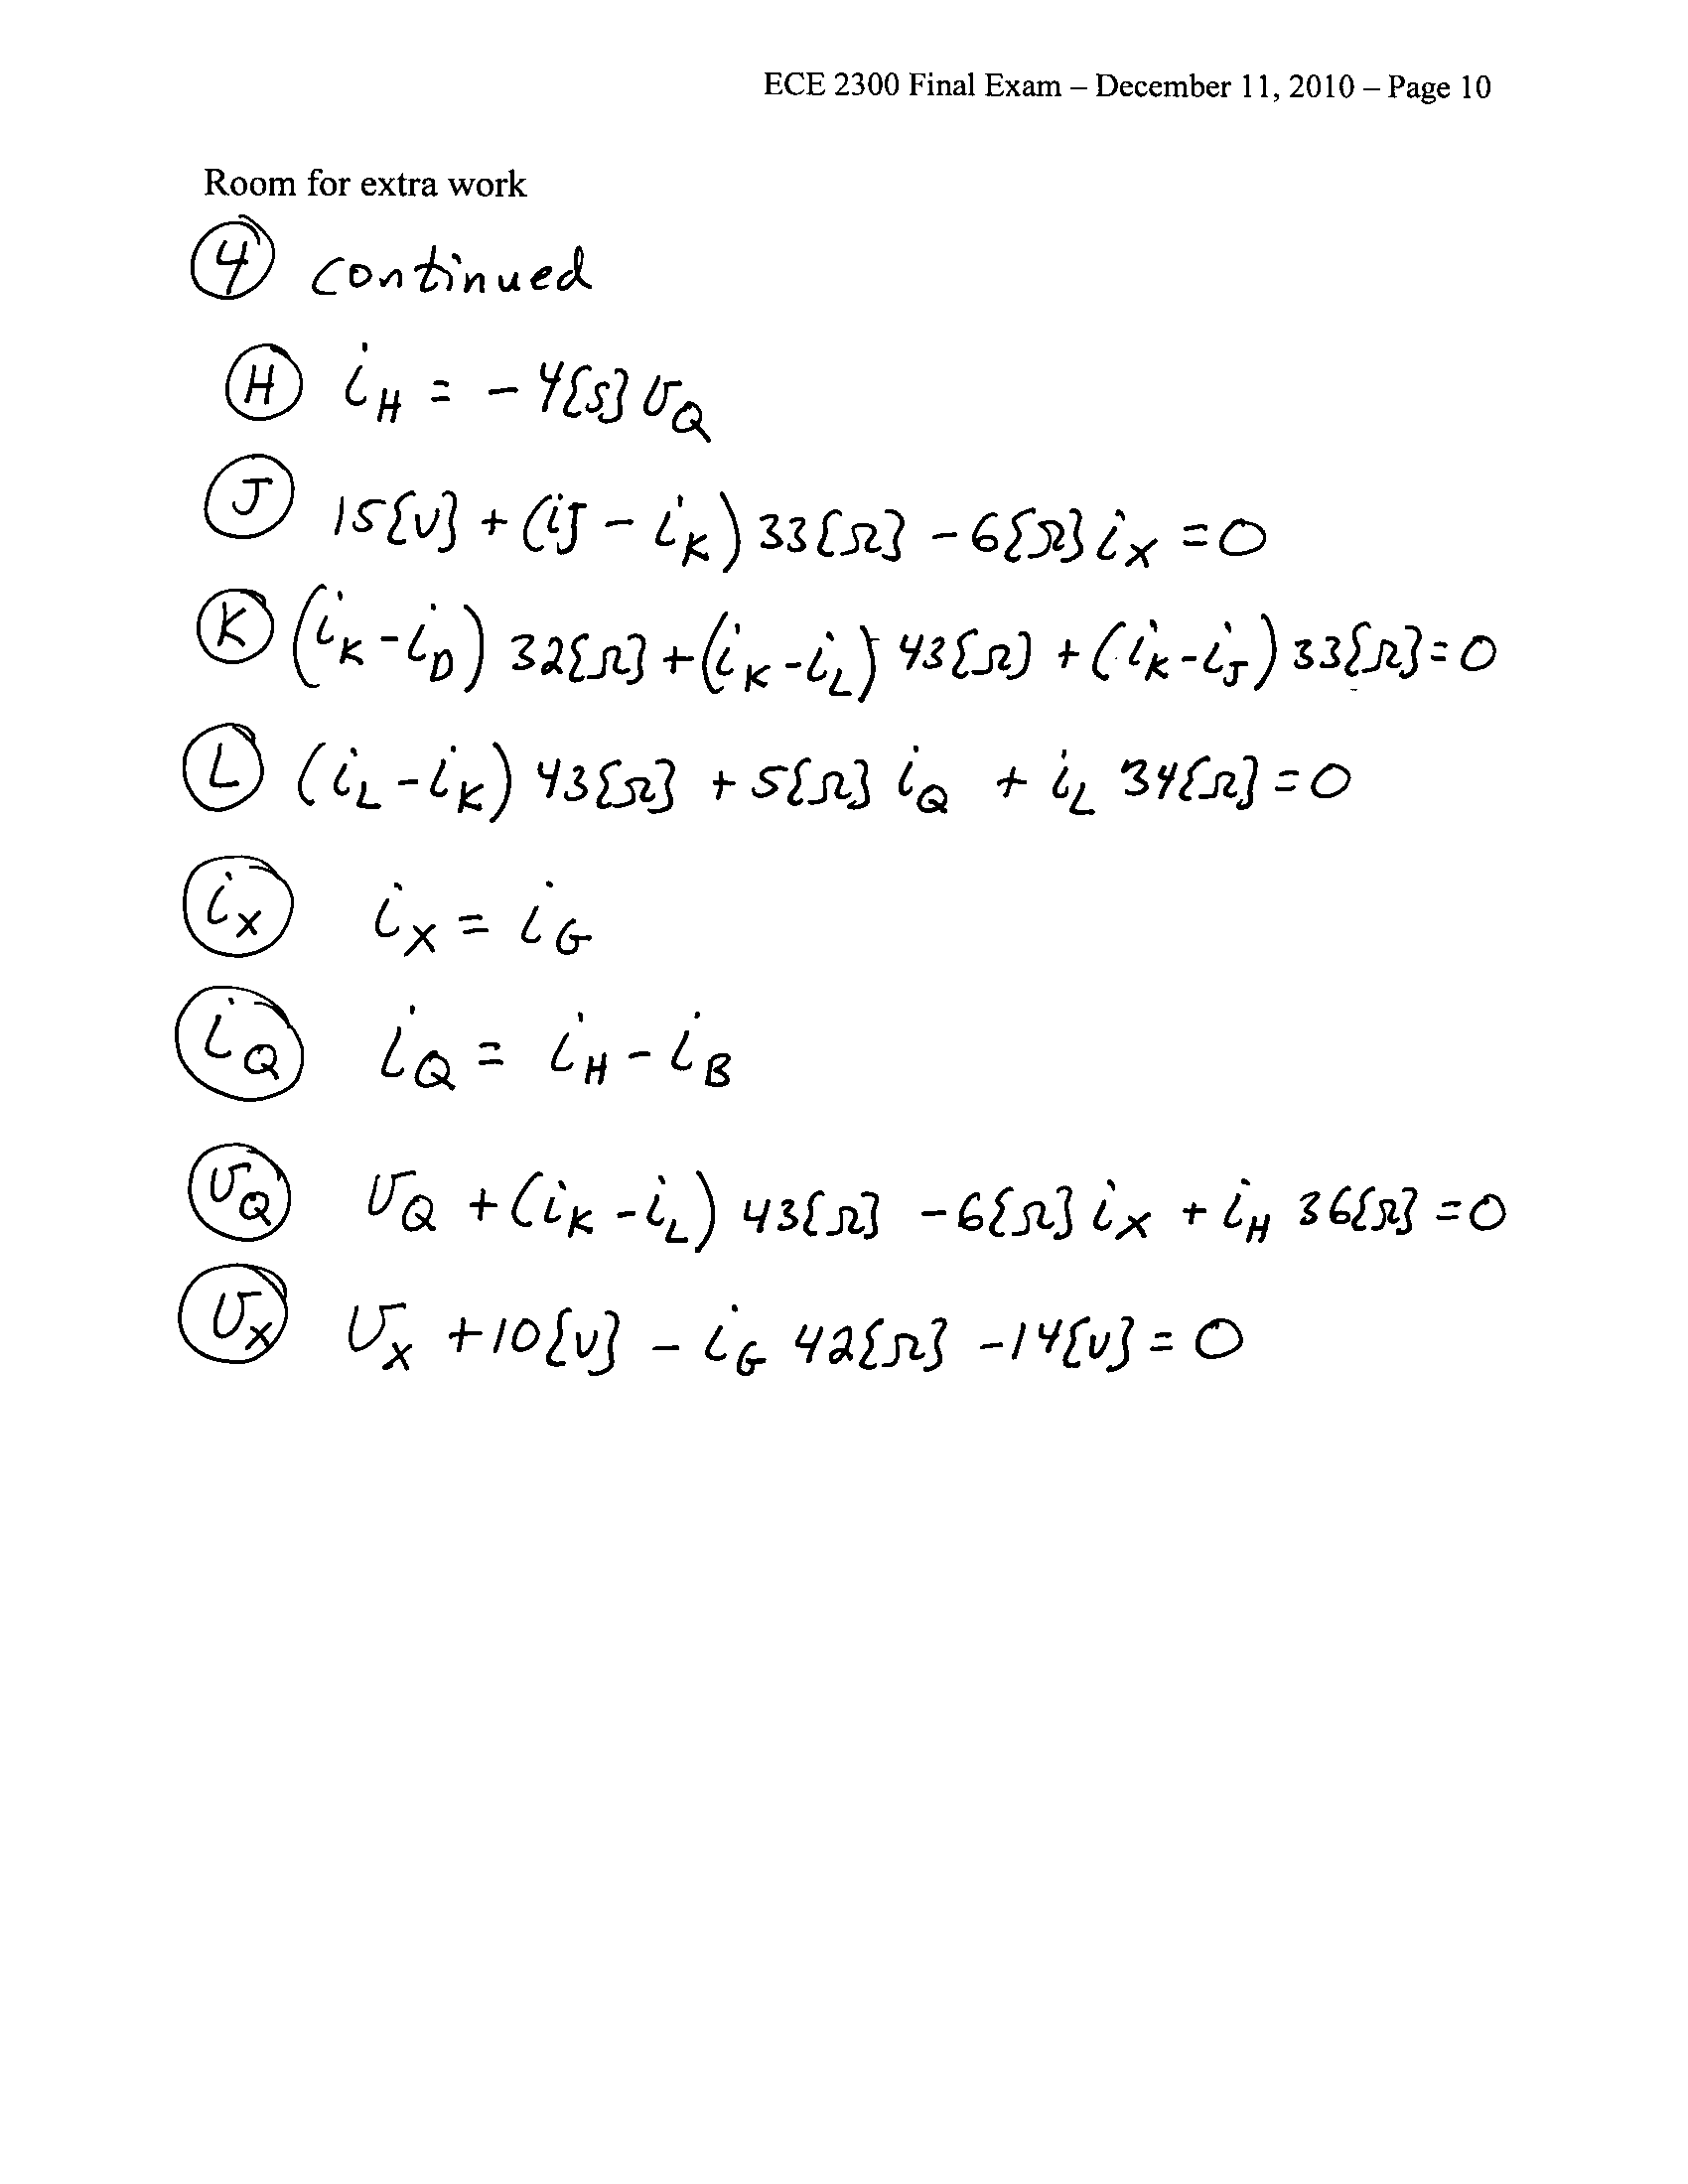 ECE 2300 Final Exam – December 11, 2010 – Page 10
Room for extra work
4 continued
H i_H = -4{S} v_Q
J 15{V} + (i_J - i_K) 33{Ω} - 6{Ω} i_X = 0
K (i_K - i_D) 32{Ω} + (i_K - i_L) 43{Ω} + (i_K - i_J) 33{Ω} = 0
L (i_L - i_K) 43{Ω} + 5{Ω} i_Q + i_L 34{Ω} = 0
i_X i_X = i_G
i_Q i_Q = i_H - i_B
v_Q v_Q + (i_K - i_L) 43{Ω} - 6{Ω} i_X + i_H 36{Ω} = 0
v_X v_X + 10{V} - i_G 42{Ω} - 14{V} = 0